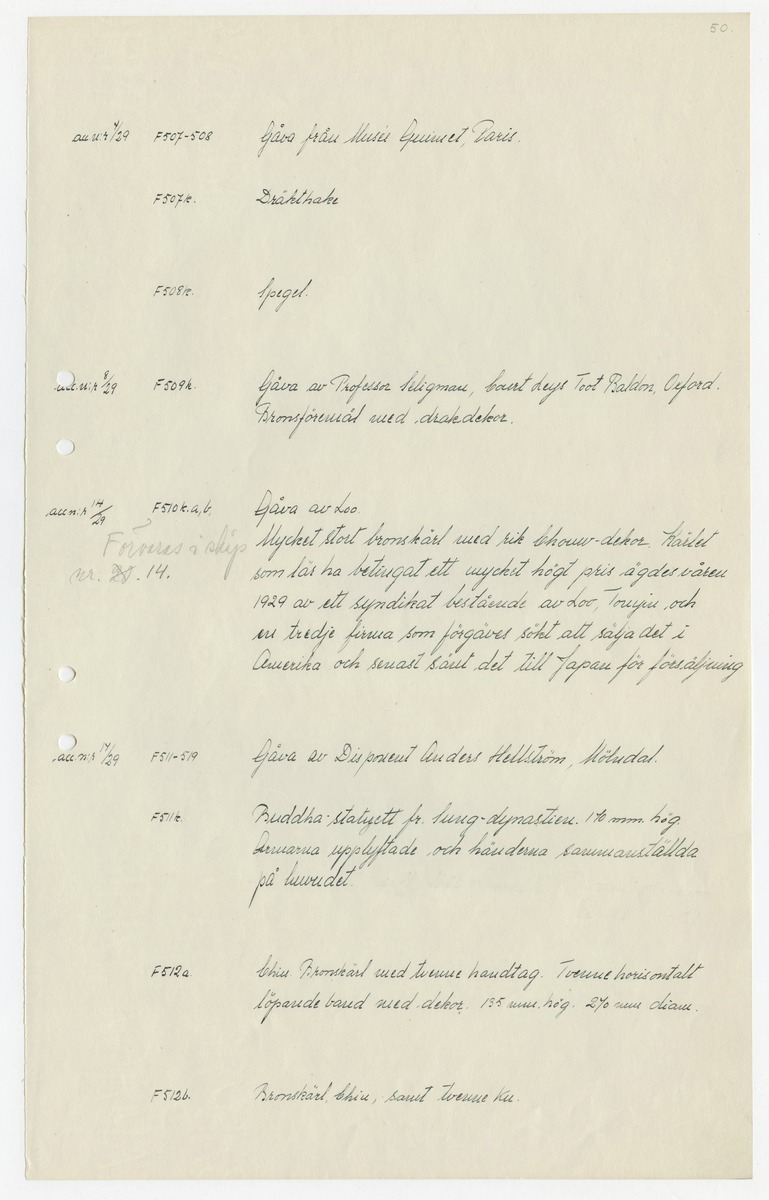 50.
acc.n:r 4/29 F507-508 Gåva från Musée Guimet, Paris.
F507k. Dräkthake
F508k. Spegel.
acc.n:r 8/29 F509k. Gåva av Professor Seligman, Court Leys Toot Baldon, Oxford.
Bronsföremål med drakdekor.
acc.n:r 14/29 F510k.a,b, Gåva av Loo.
Mycket stort bronskärl med rik Chouw-dekor. Kärlet
Förvaras i skåp
som läs ha betingat ett mycket högt pris ägdes våren
nr. 14.
1929 av ett syndikat bestående av Loo, Tonyin, och
en tredje firma som förgäves sökt att sälja det i
Amerika och senast sänt det till Japan för försäljning
acc.n:r 17/29 F511-519 Gåva av Disponent Anders Hellström, Mölndal.
F511k. Buddha-statyett fr. Sung-dynastien. 170 mm. hög
Armarna upplyftade och händerna sammanställda
på huvudet.
F512a. Chin. Bronskärl med tvenne handtag. Tvenne horisontalt
löpande band med dekor. 135 mm. hög. 270 mm diam.
F512b. Bronskärl, Chin, samt tvenne Ku.